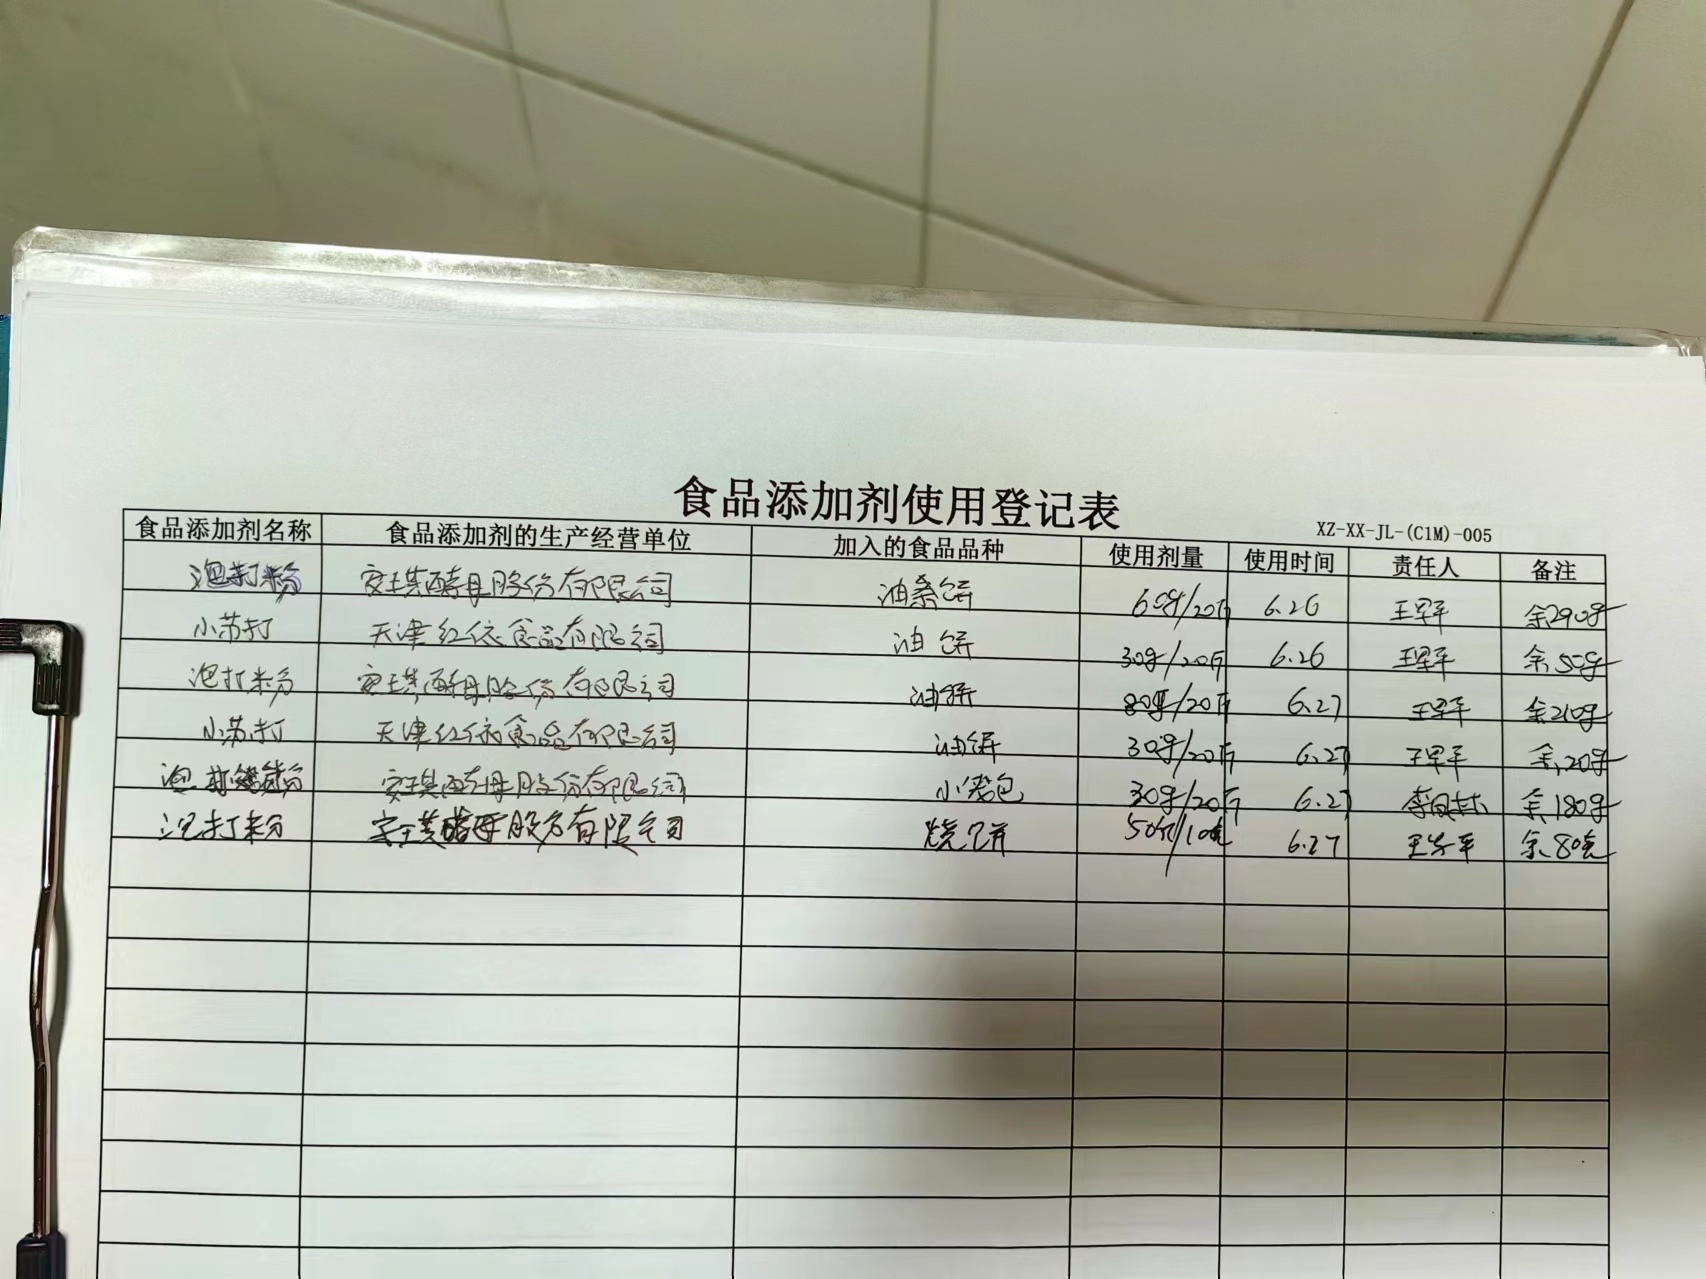 食品添加剂使用登记表
XZ-XX-JL-(C1M)-005
食品添加剂名称 食品添加剂的生产经营单位 加入的食品品种 使用剂量 使用时间 责任人 备注
泡打粉 安琪酵母股份有限公司 油条饼 60g/20斤 6.26 王军平 余290g
小苏打 天津红依食品有限公司 油饼 30g/20斤 6.26 王军平 余50g
泡打粉 安琪酵母股份有限公司 油饼 80g/20斤 6.27 王军平 余210g
小苏打 天津红依食品有限公司 油饼 30g/20斤 6.27 王军平 余20g
泡打粉 安琪酵母股份有限公司 小笼包 30g/20斤 6.27 余180g
泡打粉 安琪酵母股份有限公司 烧饼 6.27 余80克